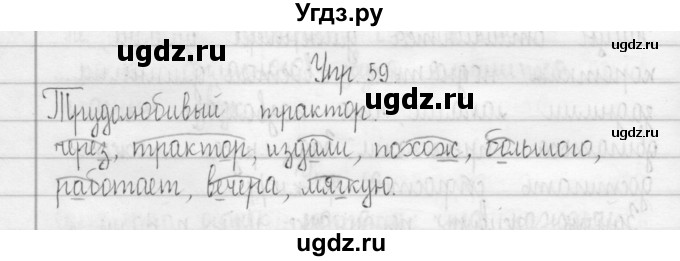 Угдз.ру
ugdz.ru ugdz.ru
Упр 59
ugdz.ru
Трудолюбивый трактор
через, трактор, издали, похож, большого,
работает, вечера, мягкую.
ugdz.ru ugdz.ru
ugdz.ru